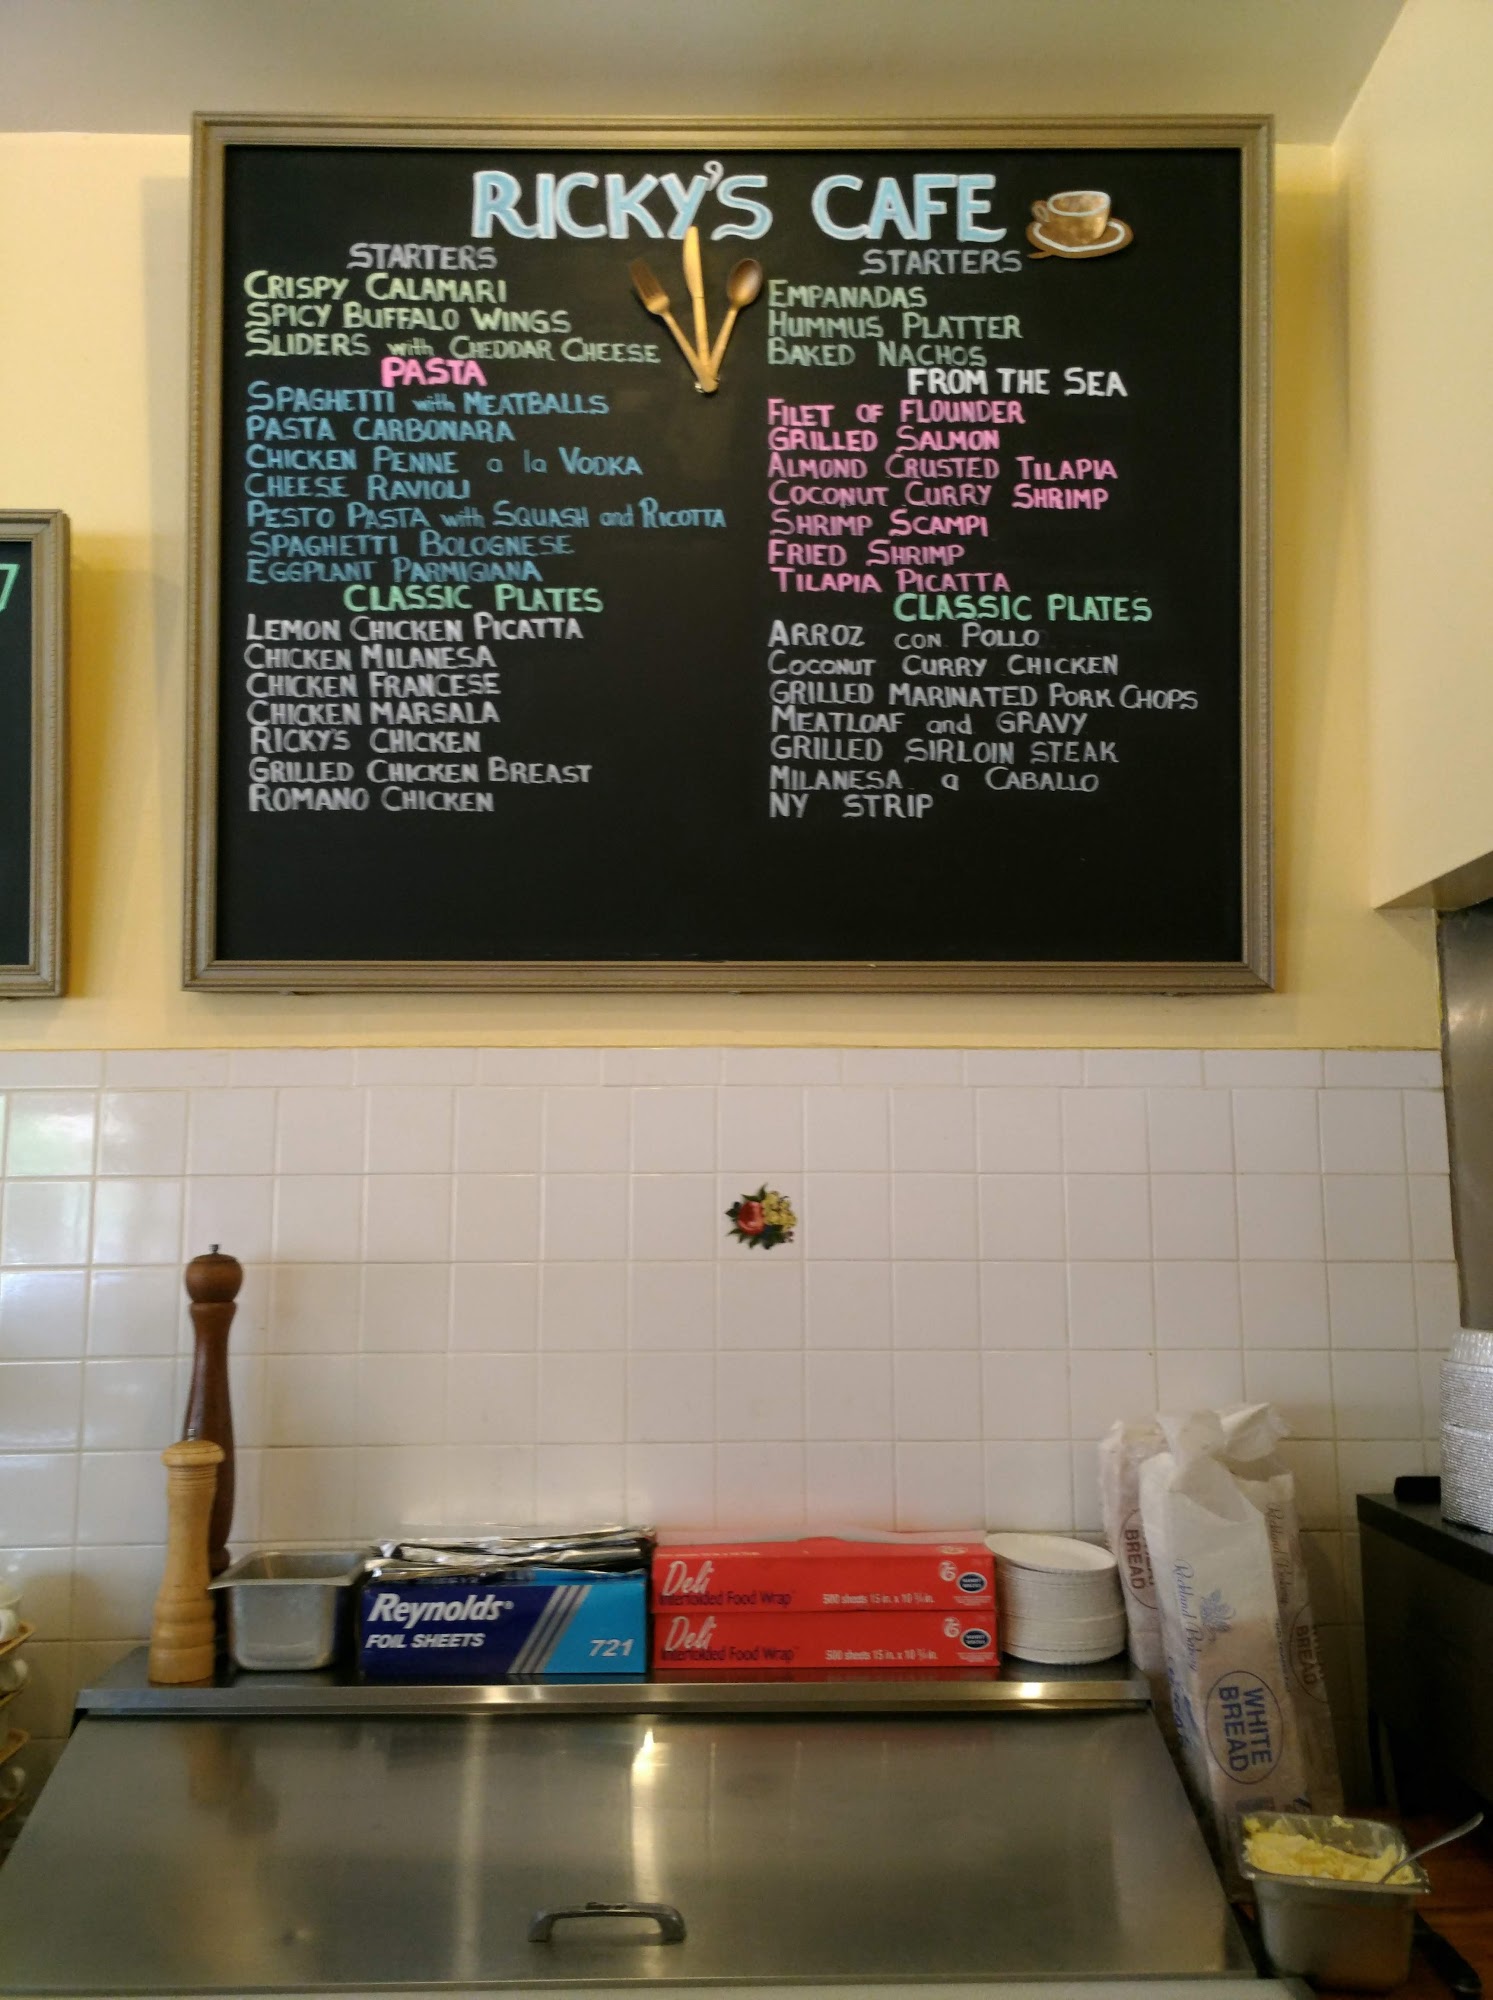 RICKY'S CAFE
STARTERS
CRISPY CALAMARI
SPICY BUFFALO WINGS
SLIDERS with CHEDDAR CHEESE
PASTA
SPAGHETTI with MEATBALLS
PASTA CARBONARA
CHICKEN PENNE a la VODKA
CHEESE RAVIOLI
PESTO PASTA with SQUASH and RICOTTA
SPAGHETTI BOLOGNESE
EGGPLANT PARMIGIANA
CLASSIC PLATES
LEMON CHICKEN PICATTA
CHICKEN MILANESA
CHICKEN FRANCESE
CHICKEN MARSALA
RICKY'S CHICKEN
GRILLED CHICKEN BREAST
ROMANO CHICKEN
STARTERS
EMPANADAS
HUMMUS PLATTER
BAKED NACHOS
FROM THE SEA
FILET OF FLOUNDER
GRILLED SALMON
ALMOND CRUSTED TILAPIA
COCONUT CURRY SHRIMP
SHRIMP SCAMPI
FRIED SHRIMP
TILAPIA PICATTA
CLASSIC PLATES
ARROZ CON POLLO
COCONUT CURRY CHICKEN
GRILLED MARINATED PORK CHOPS
MEATLOAF and GRAVY
GRILLED SIRLOIN STEAK
MILANESA a CABALLO
NY STRIP
Reynolds®
FOIL SHEETS
721
Deli
Interfolded Food Wrap
500 sheets 15 in. x 10 ¾ in.
Deli
Interfolded Food Wrap
500 sheets 15 in. x 10 ¾ in.
BREAD
WHITE
BREAD
BREAD